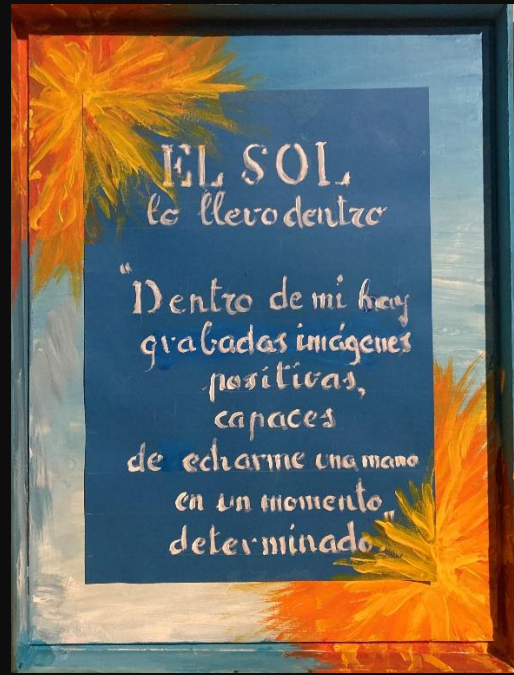 EL SOL
lo llevo dentro
"Dentro de mi hay
grabadas imágenes
positivas,
capaces
de echarme una mano
en un momento
determinado."